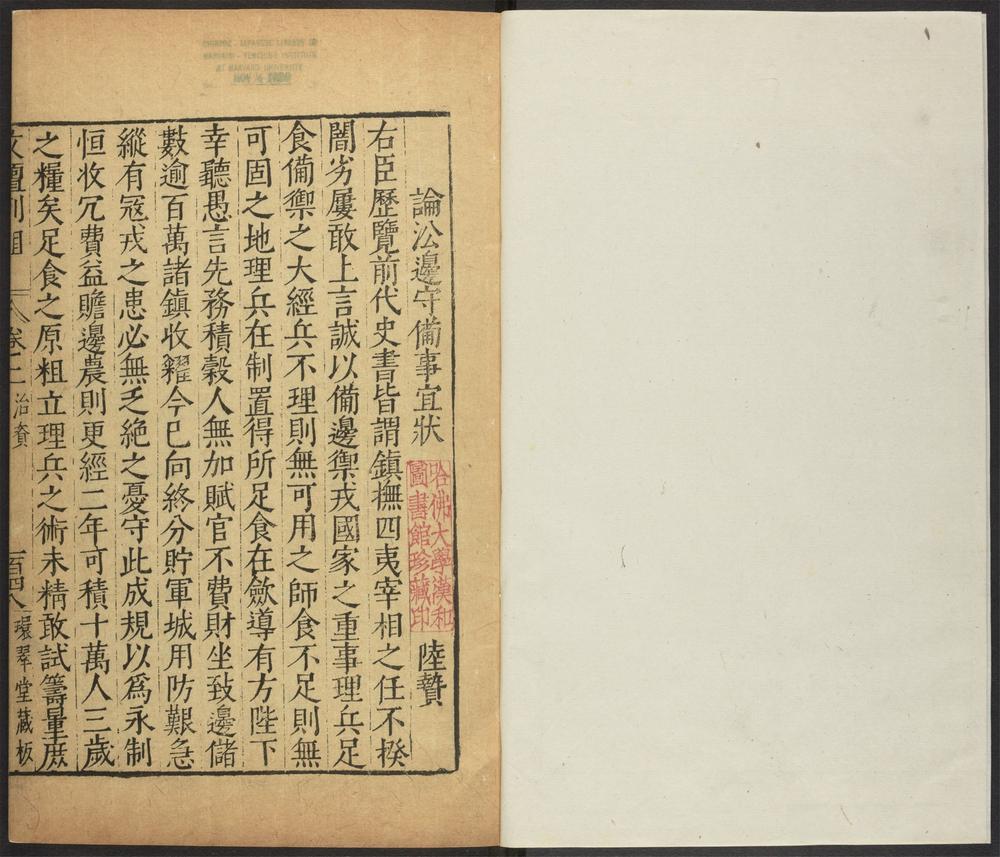 CHINESE - JAPANESE LIBRARY OF
HARVARD - YENCHING INSTITUTE
AT HARVARD UNIVERSITY
論㳂邊守備事宜狀
哈佛大學漢和
圖書館珍藏印
陸贄
右臣歷覽前代史書皆謂鎮撫四夷宰相之任不揆
闇劣屢敢上言誠以備邊禦戎國家之重事理兵足
食備禦之大經兵不理則無可用之師食不足則無
可固之地理兵在制置得所足食在歛導有方陛下
幸聽愚言先務積穀人無加賦官不費財坐致邊儲
數逾百萬諸鎮收糴今已向終分貯軍城用防艱急
縱有寇戎之患必無乏絶之憂守此成規以爲永制
恒收冗費益贍邊農則更經二年可積十萬人三歲
之糧矣足食之原粗立理兵之術未精敢試籌量庶
卷二 治資 一百四八 環翠堂藏板